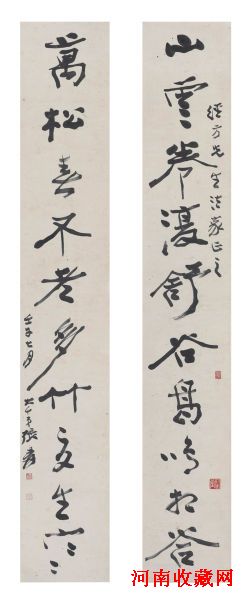 山雲卷復舒谷鳥鳴相答
經方先生法家正之
萬松春不老多竹夏生寒
壬子七月 大千弟張爰
河南收藏网